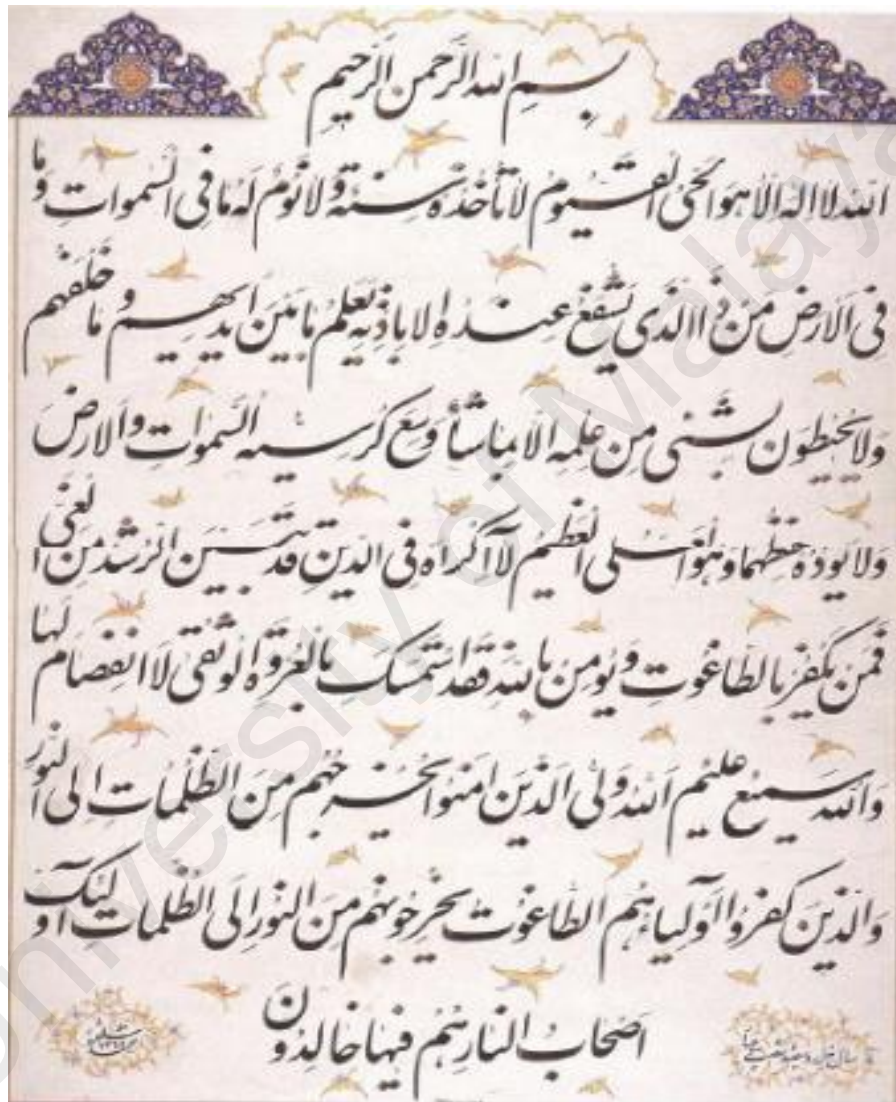 بسم الله الرحمن الرحيم
الله لا اله الا هو الحی القیوم لا تأخذه سنة ولا نوم له ما فی السموات وما
فی الارض من ذا الذی یشفع عنده الا باذنه یعلم ما بین ایدیهم وما خلفهم
ولا یحیطون بشئی من علمه الا بماشأ وسع کرسیه السموات والارض
ولا یوده حفظهما وهو العلی العظیم لا اکراه فی الدین قد تبین الرشد من الغی
فمن یکفر بالطاغوت ویومن بالله فقد استمسک بالعروة الوثقی لا انفصام لها
والله سمیع علیم الله ولی الذین امنوا یخرجهم من الظلمات الی النور
والذین کفروا اولیاءهم الطاغوت یخرجونهم من النور الی الظلمات اولیک
اصحاب النار هم فیها خالدون
University of Malaya